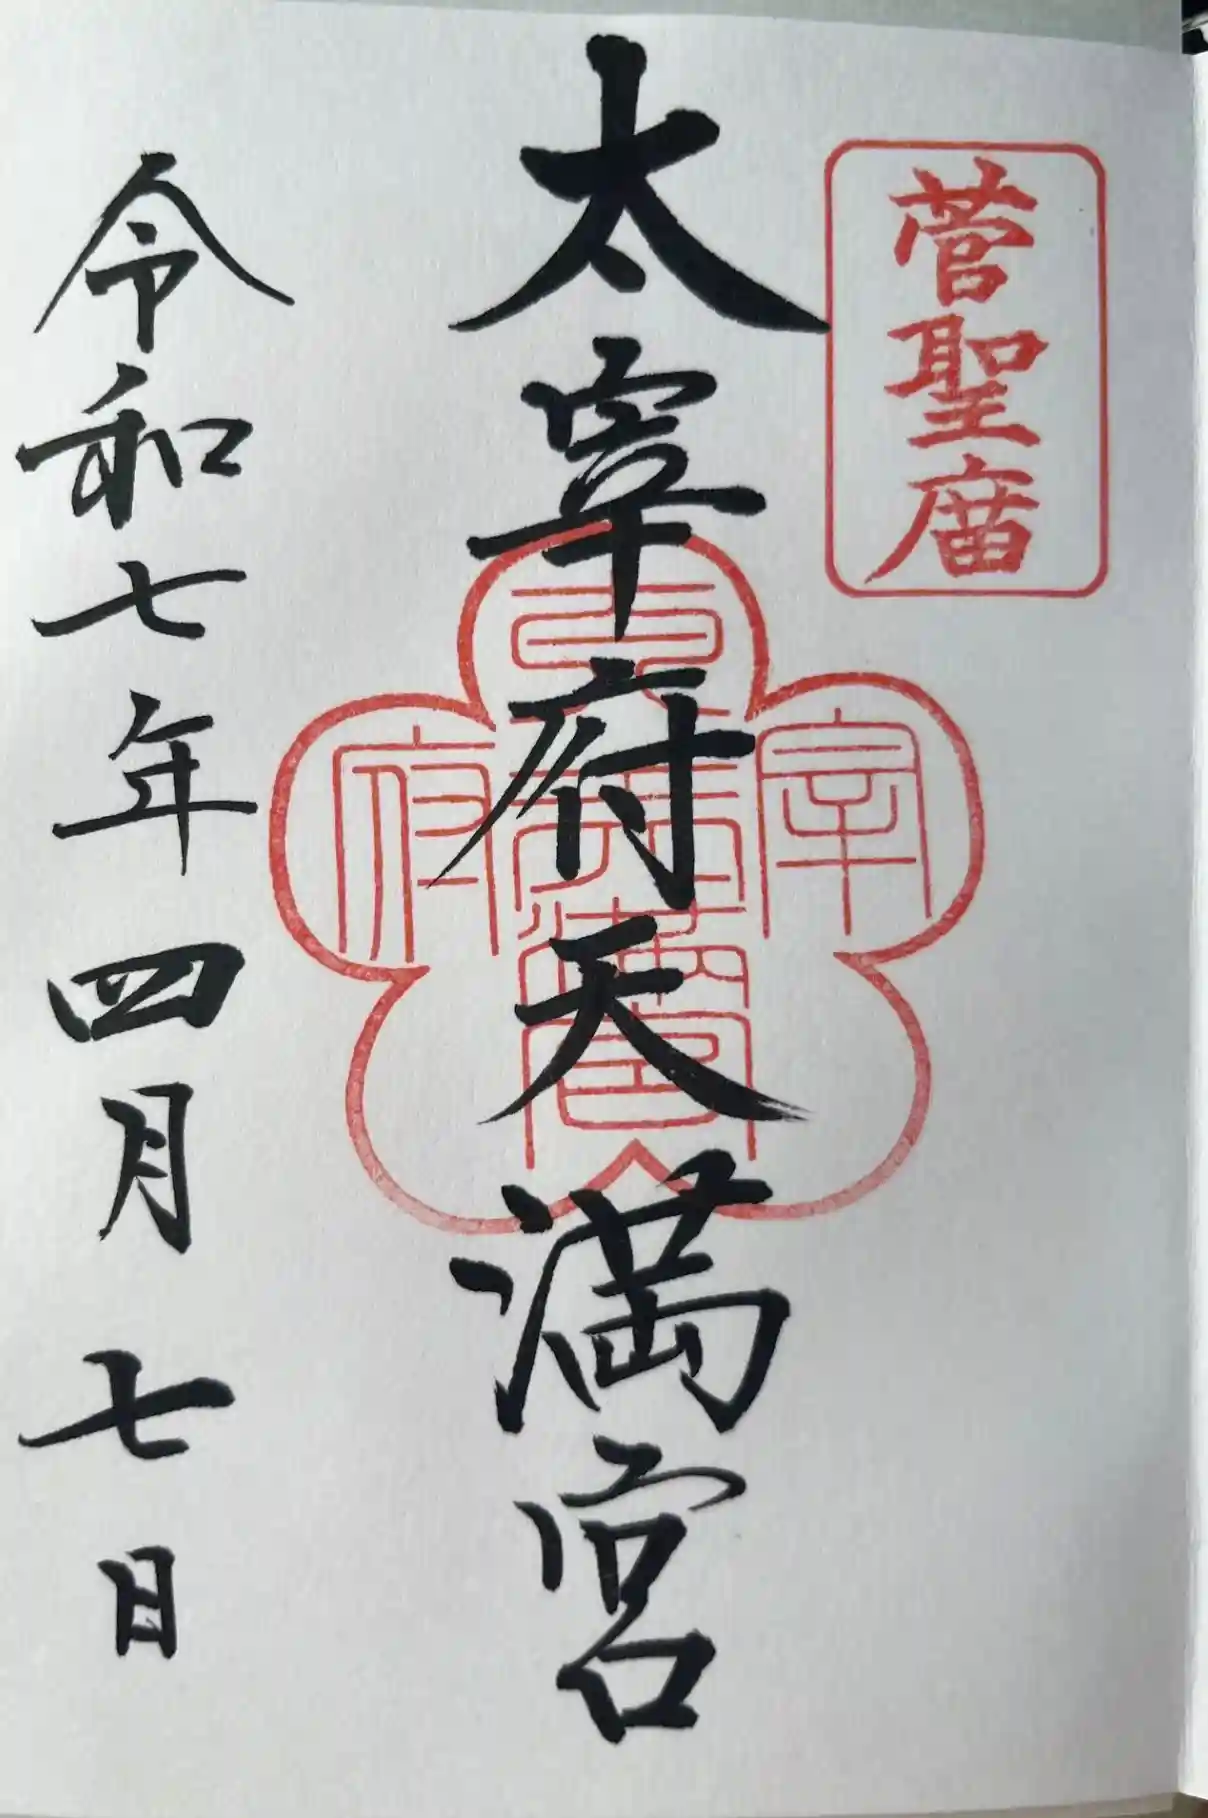 菅聖庿
太宰府天満宮
太宰府天満宮
令和七年四月七日